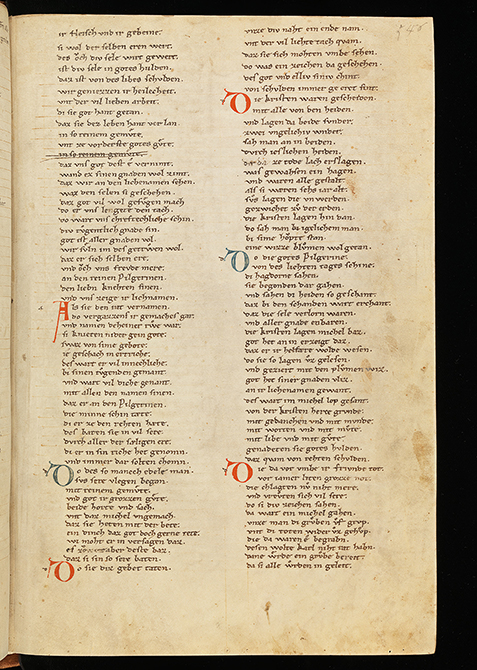 ir fleisch und ir gebeine.
si wol der selben eren wert.
des ovch div sele wirt gewert.
ist div sele in gotes hulden.
daz ist von des libes schulden.
wir geniezzen ir heilecheit.
vnt der vil lieben arbeit.
di sie got hant getan.
daz sie der leben hant verlan.
in so reinem gemvte.
vnt ze vorderste gotes gvte.
in so reinem gemvte.
daz vns got dest e vernimt.
wand ez sinen gnaden wol zimt.
daz wir an den lichenamen sehen.
waz den selen si geschehen.
daz got vil wol gefvgen mach
do er vns lengete den tach.
vo wart vns chreftechliche schin
div tvgentlich gnade sin.
got ist aller gnaden vol.
wir svln im des getrwen wol.
daz er sich selben ere.
und ovch uns frevde mere.
an den reinen pilgerinen.
den lieben knehten sinen.
und vns zeige ir lichnamen.
Als sie ben itt vernamen.
do vergazzens ir gemaches gar.
und namen deheiner rwe war.
si knieten nider gein gote.
swaz von sime gebote.
ie geschach in ertriche.
des wart er vil innechliche.
bi sinen tvgenden gemant.
und wart vil diche genant.
mit allen den namen sinen.
daz er an den pilgerinen.
die minne schin tete.
di er ze den rehten hete.
des baten sie in vil stete.
durch aller der sæligen ere.
di er in sin riche het genomen.
und immer dar solten chomen.
Do des so manech edele man.
svs stete vlegen began.
mit reinem gemvte.
und got ir grozzen gvte.
beide horte und sach.
vnt daz michel ungemach.
daz sie heten mit der bete.
ein dinch daz got doch gerne tete.
wi moht er in versagen daz.
er aber deste baz.
daz si sin so stete baten.
Do sie diz gebet taten.
vnze div naht ein ende nam.
vnt der vil liehte tach quam.
daz sie sich mohten umbe sehen.
do was ein zeichen da geschehen.
des got und elliv siniv chint.
von schulden immer ge eret sint.
Die kristen waren gescheiden.
mit alle von ben heiden.
und lagen da beide sunder.
zwei ungelichiv wnder.
sah man an in beiden.
durch ieslichen heiden.
ze tode lach erslagen.
was gewahsen ein hagen.
und waren alle gestalt.
als si weren sehs iar alt.
svs lagen die unwerden.
gezwichet zv der erden.
die kristen lagen hin dan.
do sah man ie igelichem man.
bi sime hovpte stan.
eine wizze blvmen wolgetan.
Do die gotes pilgerine.
von des liehten tages schine.
di hagdorne sahen.
sie begonden dar gahen.
und sahen di heiden so geschant.
daz bi den schanden wart erchant.
daz die sele verlorn waren.
und aller gnade enbaren.
die kristen lagen michel baz.
got het an in erzeigt daz.
daz er ir helfære wolde wesen.
do sie so lagen vz gelesen.
und gezieret mit den plvmen wiz.
got het siner gnaden vliz.
an ir lichenamen gewant.
des wart im michel lop gesant.
von der kristen herze grunde.
mit gedanchen und mit munde.
mit worten und mit mvte.
mit libe und mit gvte.
genadeten sie gotes hulden.
daz quam von rehten schulden.
Die da vor umbe ir frivnde tot.
vor iamer liten grozze not.
die chlagten nv niht mere.
und vrevten sich vil sere.
do si div zeichen sahen.
da wart ein michel gahen.
vnze man di gruben vf grvp.
vnt di toten wider vz gehvp.
die da waren e begrabn.
desen wolte karl niht rat habn.
dane wrde ein grvbe bereit.
da si alle wrden in geleit.